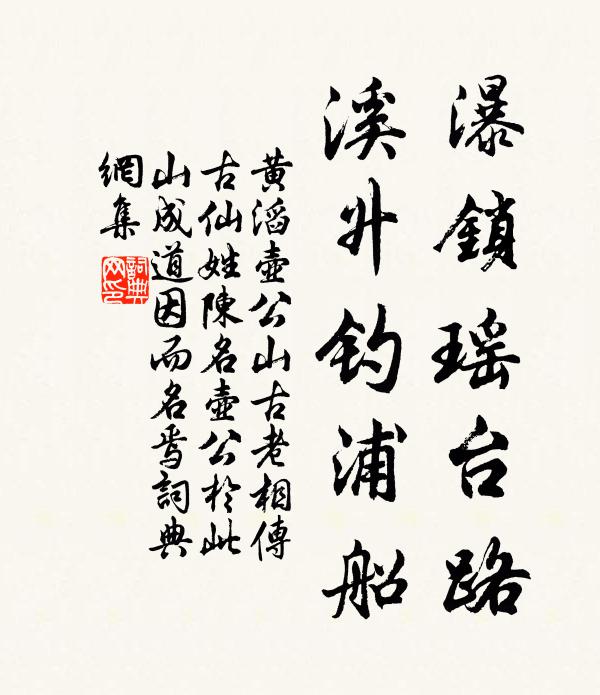 瀑鎖瑶台路
溪升钓浦船
黄滔壺公山古老相傳
古仙姓陳名壺公於此
山成道因而名焉詞典
網集
詞典
网印